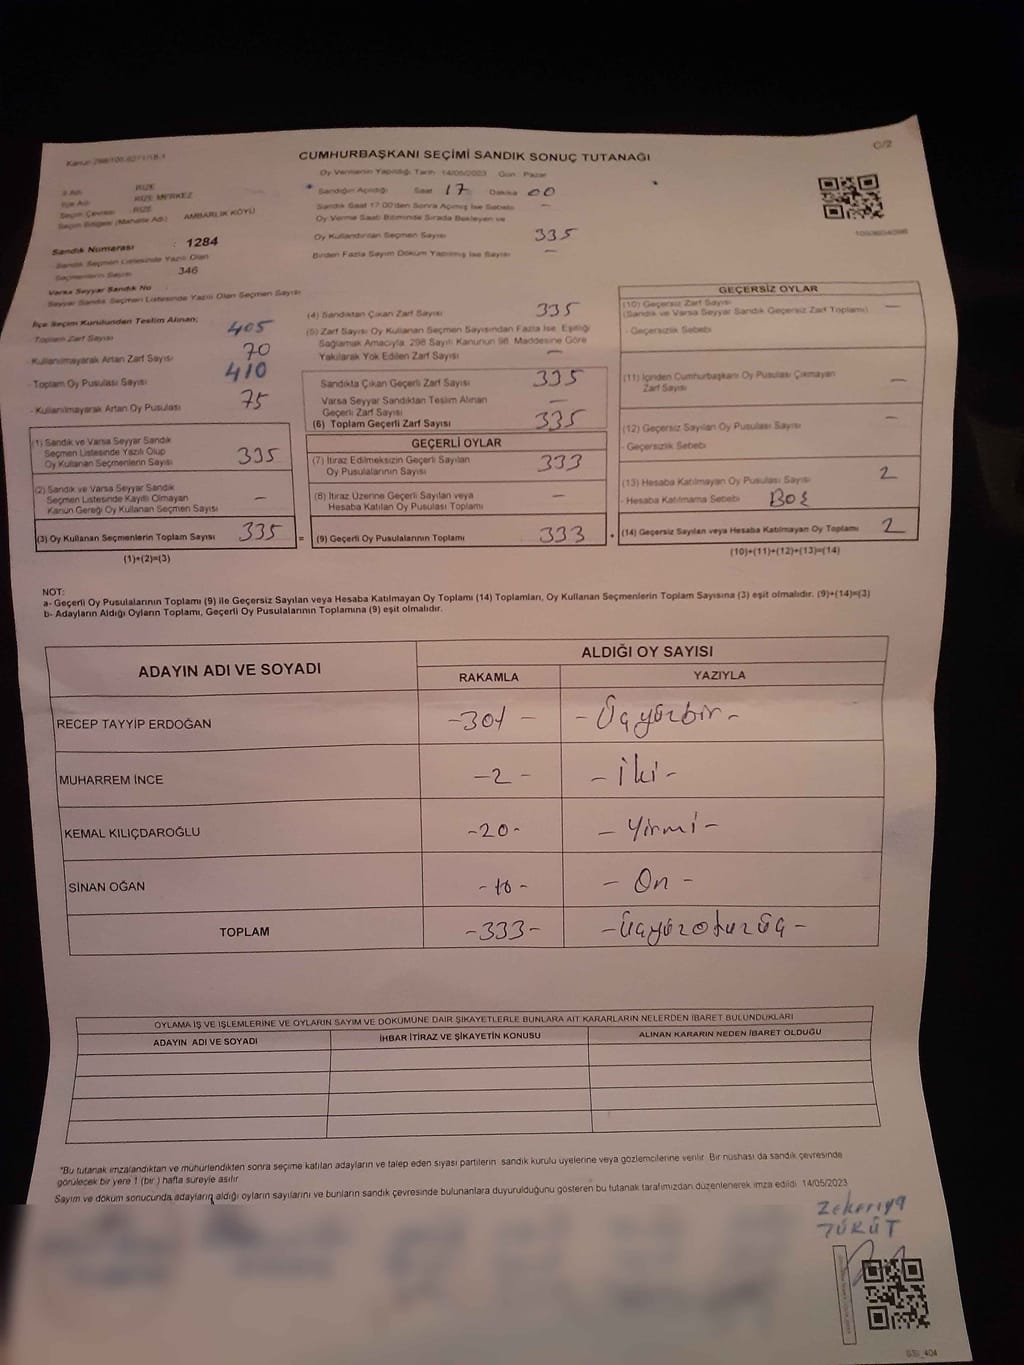 Kanun 298/105-827/118-1
C/2
CUMHURBAŞKANI SEÇİMİ SANDIK SONUÇ TUTANAĞI
Oy Vermenin Yapıldığı Tarih 14/05/2023 Gün Pazar
İl Adı RİZE
İlçe Adı RİZE MERKEZ
Seçim Çevresi : RİZE
Seçim Bölgesi (Mahalle Adı) AMBARLIK KÖYÜ
Sandık Numarası : 1284
Sandık Seçmen Listesinde Yazılı Olan
Seçmenlerin Sayısı 346
Sandığın Açıldığı Saat 17 Dakika 00
Sandık Saat 17.00'den Sonra Açılmış İse Sebebi —
Oy Verme Saati Bitiminde Sırada Bekleyen ve
Oy Kullandırılan Seçmen Sayısı 335
Birden Fazla Sayım Döküm Yapılmış İse Sayısı —
Varsa Seyyar Sandık No
Seyyar Sandık Seçmen Listesinde Yazılı Olan Seçmen Sayısı
İlçe Seçim Kurulundan Teslim Alınan;
- Toplam Zarf Sayısı 405
- Kullanılmayarak Artan Zarf Sayısı 70
- Toplam Oy Pusulası Sayısı 410
- Kullanılmayarak Artan Oy Pusulası 75
(1) Sandık ve Varsa Seyyar Sandık
Seçmen Listesinde Yazılı Olup
Oy Kullanan Seçmenlerin Sayısı 335
(2) Sandık ve Varsa Seyyar Sandık
Seçmen Listesinde Kayıtlı Olmayan
Kanun Gereği Oy Kullanan Seçmen Sayısı —
(3) Oy Kullanan Seçmenlerin Toplam Sayısı 335 =
(1)+(2)=(3)
(4) Sandıktan Çıkan Zarf Sayısı 335
(5) Zarf Sayısı Oy Kullanan Seçmen Sayısından Fazla İse, Eşitliği
Sağlamak Amacıyla, 298 Sayılı Kanunun 98. Maddesine Göre
Yakılarak Yok Edilen Zarf Sayısı —
Sandıkta Çıkan Geçerli Zarf Sayısı 335
Varsa Seyyar Sandıktan Teslim Alınan
Geçerli Zarf Sayısı —
(6) Toplam Geçerli Zarf Sayısı 335
GEÇERLİ OYLAR
(7) İtiraz Edilmeksizin Geçerli Sayılan
Oy Pusulalarının Sayısı 333
(8) İtiraz Üzerine Geçerli Sayılan veya
Hesaba Katılan Oy Pusulası Toplamı —
(9) Geçerli Oy Pusulalarının Toplamı 333 +
GEÇERSİZ OYLAR
(10) Geçersiz Zarf Sayısı —
(Sandık ve Varsa Seyyar Sandık Geçersiz Zarf Toplamı)
- Geçersizlik Sebebi
(11) İçinden Cumhurbaşkanı Oy Pusulası Çıkmayan
Zarf Sayısı —
(12) Geçersiz Sayılan Oy Pusulası Sayısı —
- Geçersizlik Sebebi
(13) Hesaba Katılmayan Oy Pusulası Sayısı 2
- Hesaba Katılmama Sebebi BOŞ
(14) Geçersiz Sayılan veya Hesaba Katılmayan Oy Toplamı 2
(10)+(11)+(12)+(13)=(14)
NOT:
a- Geçerli Oy Pusulalarının Toplamı (9) ile Geçersiz Sayılan veya Hesaba Katılmayan Oy Toplamı (14) Toplamları, Oy Kullanan Seçmenlerin Toplam Sayısına (3) eşit olmalıdır. (9)+(14)=(3)
b- Adayların Aldığı Oyların Toplamı, Geçerli Oy Pusulalarının Toplamına (9) eşit olmalıdır.
ADAYIN ADI VE SOYADI ALDIĞI OY SAYISI
RAKAMLA YAZIYLA
RECEP TAYYİP ERDOĞAN -301- -Üçyüzbir-
MUHARREM İNCE -2- -iki-
KEMAL KILIÇDAROĞLU -20- -Yirmi-
SİNAN OĞAN -10- -On-
TOPLAM -333- -Üçyüzotuzüç-
OYLAMA İŞ VE İŞLEMLERİNE VE OYLARIN SAYIM VE DÖKÜMÜNE DAİR ŞİKAYETLERLE BUNLARA AİT KARARLARIN NELERDEN İBARET BULUNDUKLARI
ADAYIN ADI VE SOYADI İHBAR İTİRAZ VE ŞİKAYETİN KONUSU ALINAN KARARIN NEDEN İBARET OLDUĞU
*Bu tutanak imzalandıktan ve mühürlendikten sonra seçime katılan adayların ve talep eden siyasi partilerin sandık kurulu üyelerine veya gözlemcilerine verilir. Bir nüshası da sandık çevresinde
görülecek bir yere 1 (bir ) hafta süreyle asılır.
Sayım ve döküm sonucunda adayların aldığı oyların sayılarını ve bunların sandık çevresinde bulunanlara duyurulduğunu gösteren bu tutanak tarafımızdan düzenlenerek imza edildi. 14/05/2023
Zekeriya
TÜRÜT